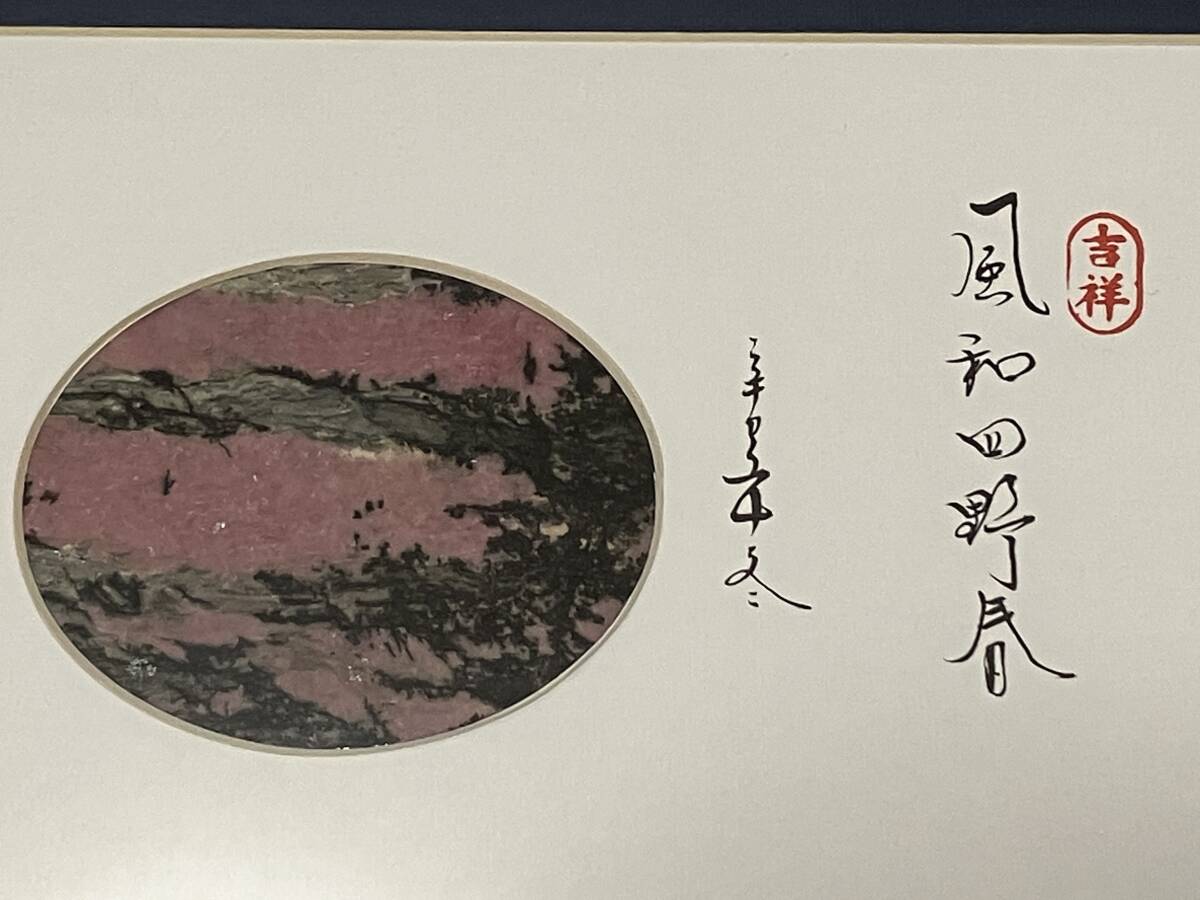 吉祥
風和四野春
辛丑年冬